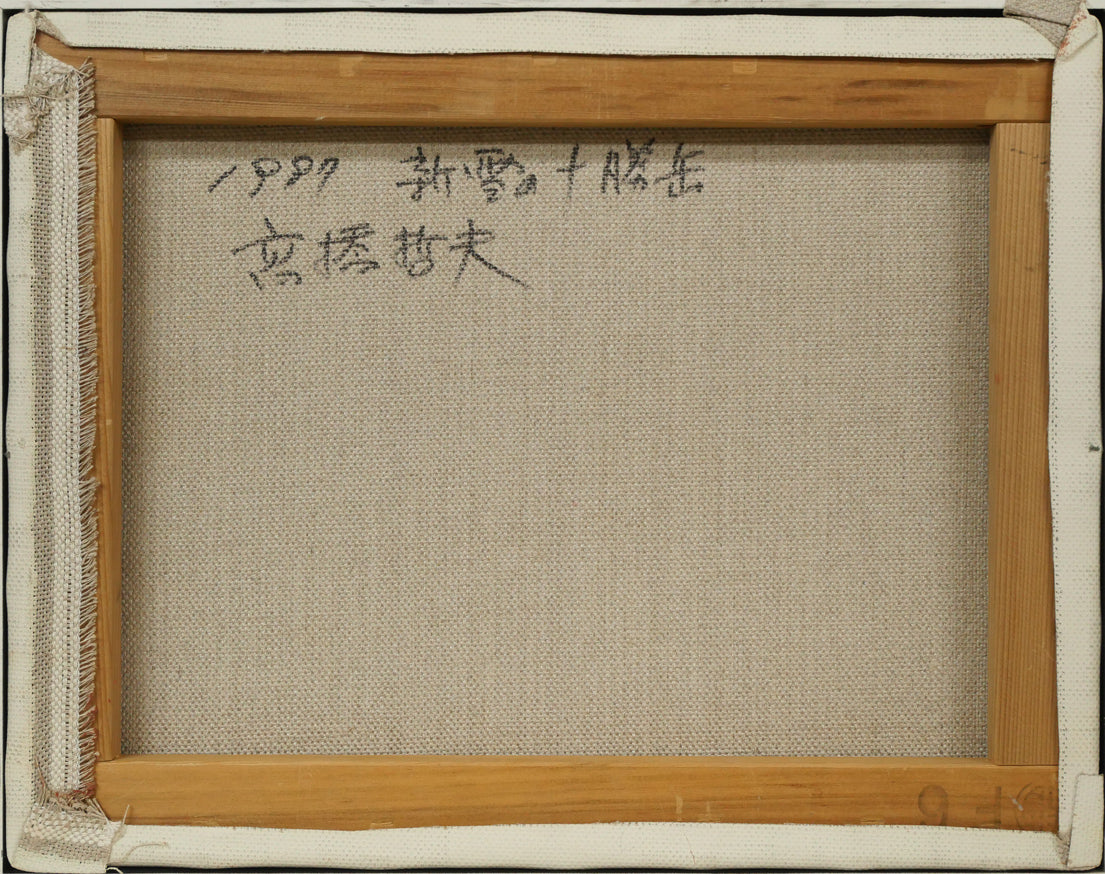 1997 新雪の十勝岳
高橋哲夫
F6